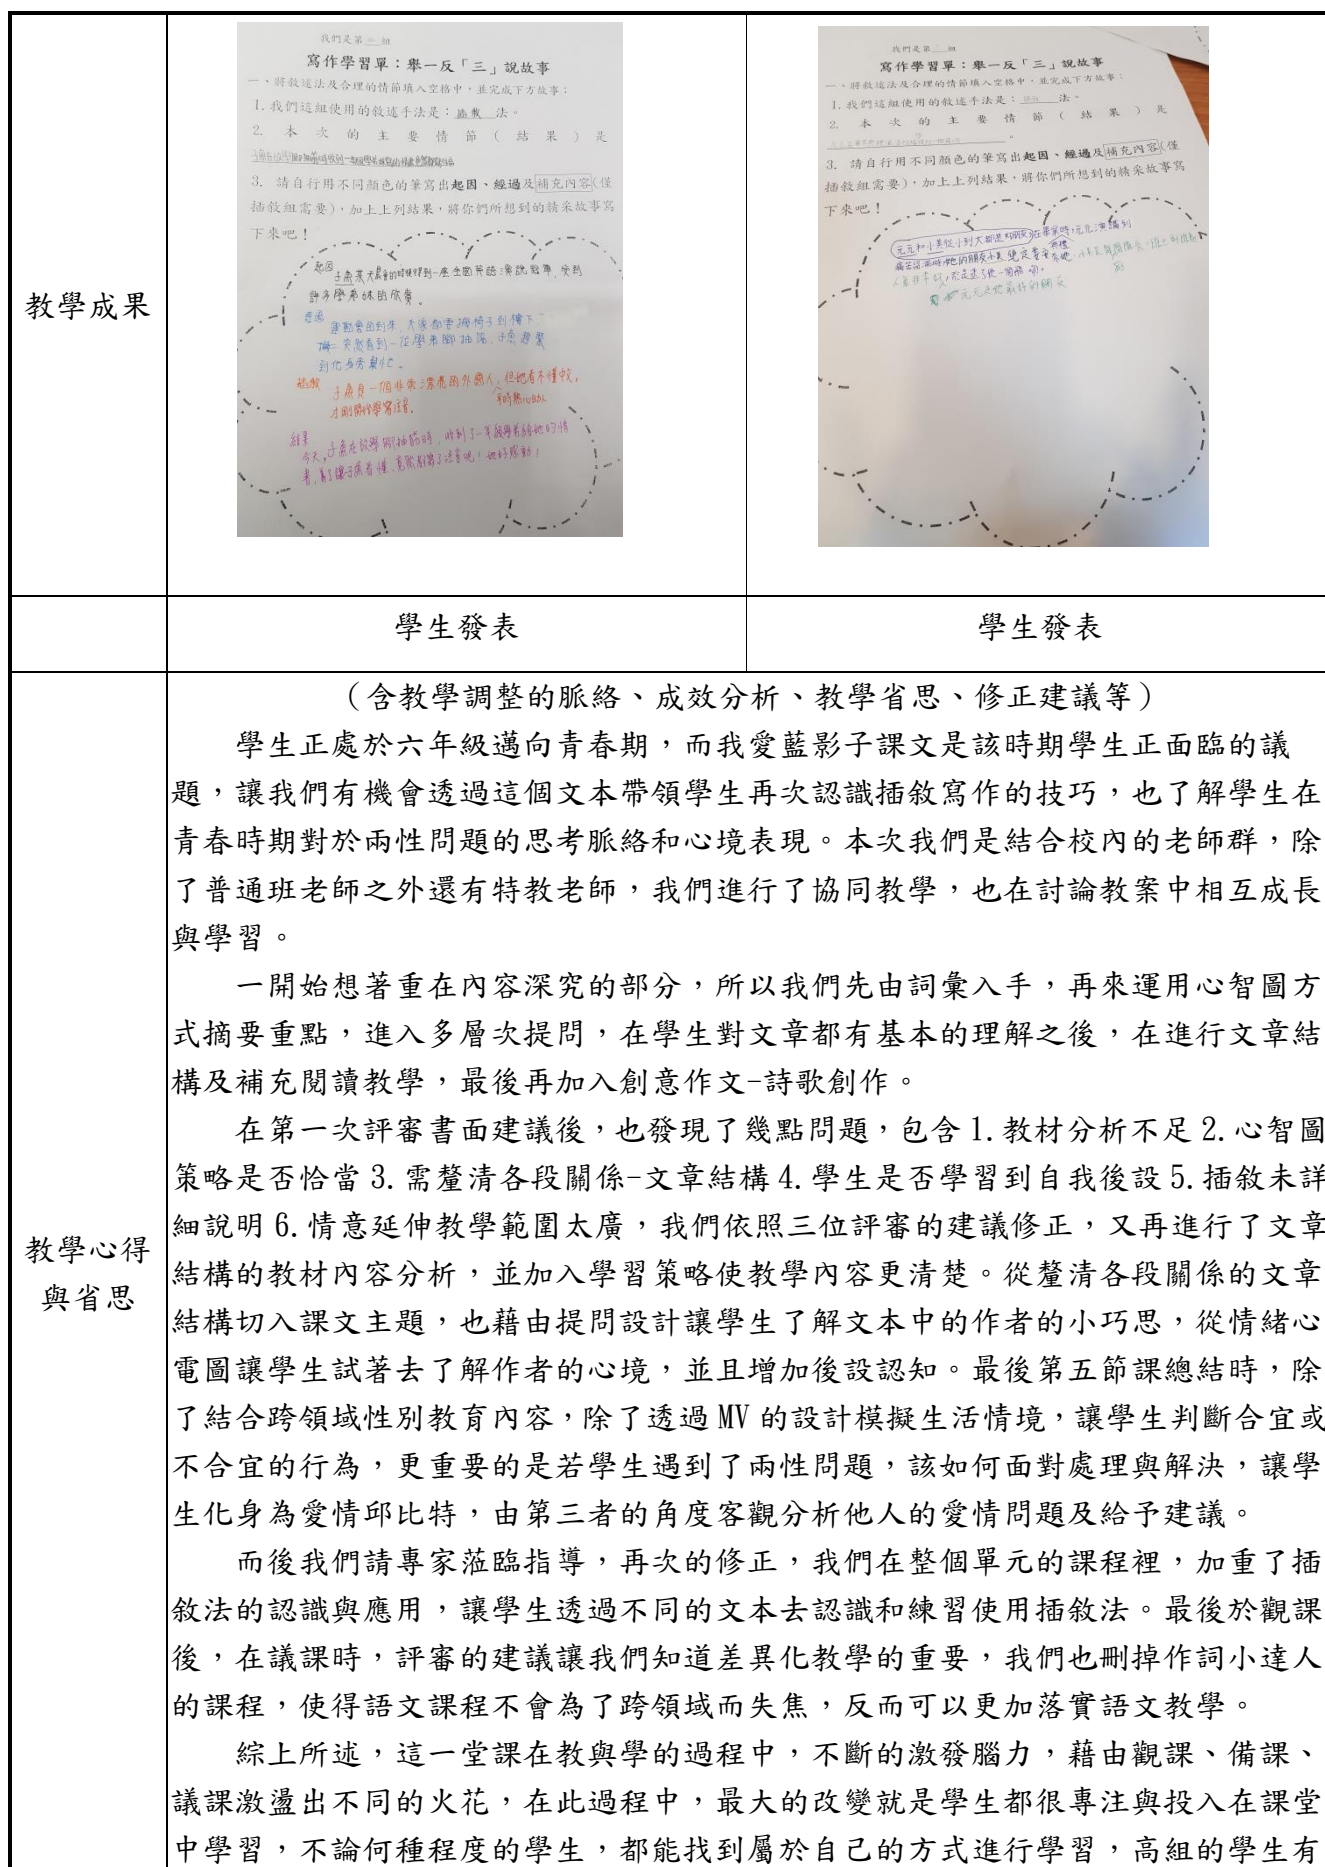 教學成果
我們是第 組
寫作學習單：舉一反「三」說故事
一、將敘述法及合理的情節填入空格中，並完成下方故事：
1. 我們這組使用的敘述手法是：插敘 法。
2. 本次的主要情節（結果）是
3. 請自行用不同顏色的筆寫出起因、經過及補充內容(僅
插敘組需要)，加上上列結果，將你們所想到的精采故事寫
下來吧！
起因
許多學弟妹的欣賞。
經過
運動會的到來，大家都要搬椅子到樓下，
突然看到一位學弟腳抽筋，子喬趕緊
插敘
子喬是一個非常漂亮的外國人，但她看不懂中文，
才剛開始學寫注音。
結果
我們是第 組
寫作學習單：舉一反「三」說故事
一、將敘述法及合理的情節填入空格中，並完成下方故事：
1. 我們這組使用的敘述手法是： 法。
2. 本次的主要情節（結果）是
3. 請自行用不同顏色的筆寫出起因、經過及補充內容(僅
插敘組需要)，加上上列結果，將你們所想到的精采故事寫
下來吧！
元元和小美從小到大都是好朋友
學生發表
學生發表
教學心得
與省思
（含教學調整的脈絡、成效分析、教學省思、修正建議等）
學生正處於六年級邁向青春期，而我愛藍影子課文是該時期學生正面臨的議
題，讓我們有機會透過這個文本帶領學生再次認識插敘寫作的技巧，也了解學生在
青春時期對於兩性問題的思考脈絡和心境表現。本次我們是結合校內的老師群，除
了普通班老師之外還有特教老師，我們進行了協同教學，也在討論教案中相互成長
與學習。
一開始想著重在內容深究的部分，所以我們先由詞彙入手，再來運用心智圖方
式摘要重點，進入多層次提問，在學生對文章都有基本的理解之後，在進行文章結
構及補充閱讀教學，最後再加入創意作文-詩歌創作。
在第一次評審書面建議後，也發現了幾點問題，包含 1.教材分析不足 2.心智圖
策略是否恰當 3.需釐清各段關係-文章結構 4.學生是否學習到自我後設 5.插敘未詳
細說明 6.情意延伸教學範圍太廣，我們依照三位評審的建議修正，又再進行了文章
結構的教材內容分析，並加入學習策略使教學內容更清楚。從釐清各段關係的文章
結構切入課文主題，也藉由提問設計讓學生了解文本中的作者的小巧思，從情緒心
電圖讓學生試著去了解作者的心境，並且增加後設認知。最後第五節課總結時，除
了結合跨領域性別教育內容，除了透過 MV 的設計模擬生活情境，讓學生判斷合宜或
不合宜的行為，更重要的是若學生遇到了兩性問題，該如何面對處理與解決，讓學
生化身為愛情邱比特，由第三者的角度客觀分析他人的愛情問題及給予建議。
而後我們請專家蒞臨指導，再次的修正，我們在整個單元的課程裡，加重了插
敘法的認識與應用，讓學生透過不同的文本去認識和練習使用插敘法。最後於觀課
後，在議課時，評審的建議讓我們知道差異化教學的重要，我們也刪掉作詞小達人
的課程，使得語文課程不會為了跨領域而失焦，反而可以更加落實語文教學。
綜上所述，這一堂課在教與學的過程中，不斷的激發腦力，藉由觀課、備課、
議課激盪出不同的火花，在此過程中，最大的改變就是學生都很專注與投入在課堂
中學習，不論何種程度的學生，都能找到屬於自己的方式進行學習，高組的學生有